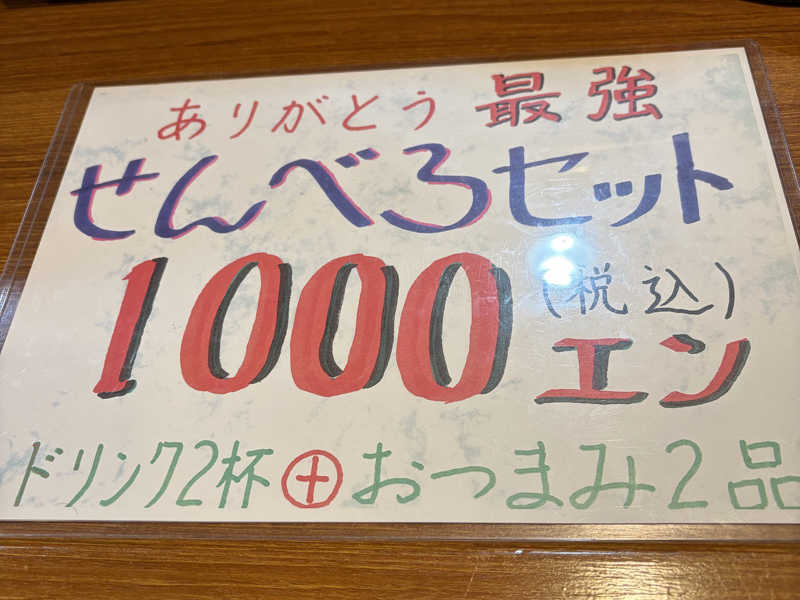 ありがとう 最強
せんべろセット
1000エン(税込)
ドリンク2杯⊕おつまみ2品